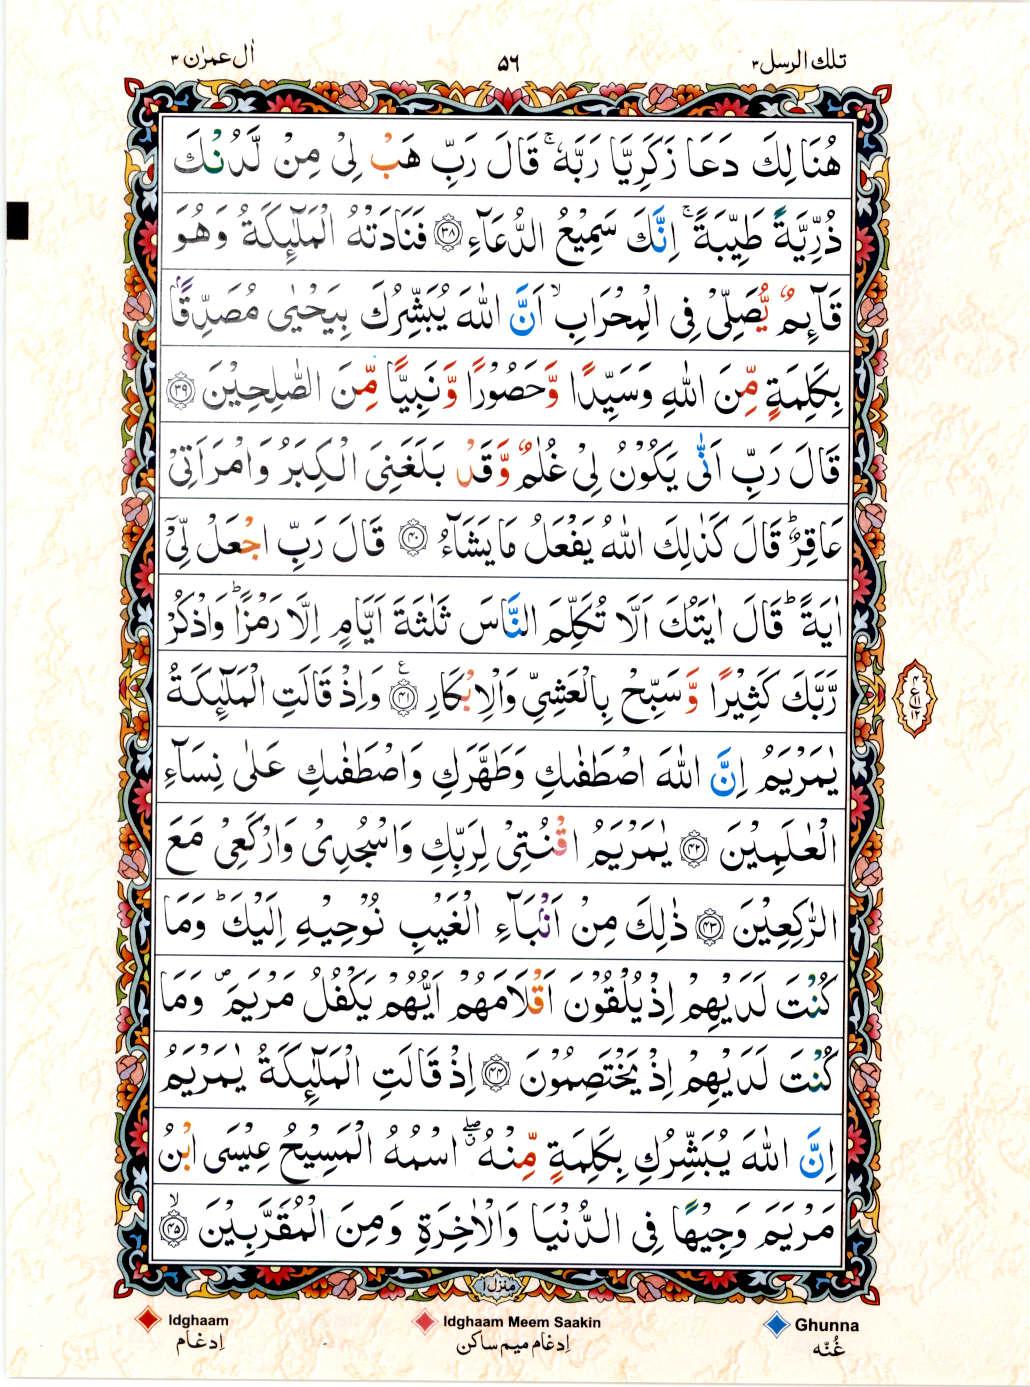 تلك الرسل ۳
۵٦
اٰل عمرٰن ۳
هُنَالِكَ دَعَا زَكَرِيَّا رَبَّهٗ ۚ قَالَ رَبِّ هَبْ لِیْ مِنْ لَّدُنْكَ
ذُرِّيَّةً طَيِّبَةً ۚ اِنَّكَ سَمِيْعُ الدُّعَآءِ ﴿۳۸﴾ فَنَادَتْهُ الْمَلٰٓئِكَةُ وَهُوَ
قَآئِمٌ يُّصَلِّیْ فِی الْمِحْرَابِ ۙ اَنَّ اللّٰهَ يُبَشِّرُكَ بِيَحْيٰی مُصَدِّقًۢا
بِكَلِمَةٍ مِّنَ اللّٰهِ وَسَيِّدًا وَّحَصُوْرًا وَّنَبِيًّا مِّنَ الصّٰلِحِيْنَ ﴿۳۹﴾
قَالَ رَبِّ اَنّٰی يَكُوْنُ لِیْ غُلٰمٌ وَّقَدْ بَلَغَنِیَ الْكِبَرُ وَامْرَاَتِیْ
عَاقِرٌ ؕ قَالَ كَذٰلِكَ اللّٰهُ يَفْعَلُ مَا يَشَآءُ ﴿۴۰﴾ قَالَ رَبِّ اجْعَلْ لِّیْۤ
اٰيَةً ؕ قَالَ اٰيَتُكَ اَلَّا تُكَلِّمَ النَّاسَ ثَلٰثَةَ اَيَّامٍ اِلَّا رَمْزًا ؕ وَاذْكُرْ
رَّبَّكَ كَثِيْرًا وَّسَبِّحْ بِالْعَشِیِّ وَالْاِبْكَارِ ﴿۴۱﴾ ع وَاِذْ قَالَتِ الْمَلٰٓئِكَةُ
۴
ع ۱۱
۱۲
يٰمَرْيَمُ اِنَّ اللّٰهَ اصْطَفٰىكِ وَطَهَّرَكِ وَاصْطَفٰىكِ عَلٰی نِسَآءِ
الْعٰلَمِيْنَ ﴿۴۲﴾ يٰمَرْيَمُ اقْنُتِیْ لِرَبِّكِ وَاسْجُدِیْ وَارْكَعِیْ مَعَ
الرّٰكِعِيْنَ ﴿۴۳﴾ ذٰلِكَ مِنْ اَنْۢبَآءِ الْغَيْبِ نُوْحِيْهِ اِلَيْكَ ؕ وَمَا
كُنْتَ لَدَيْهِمْ اِذْ يُلْقُوْنَ اَقْلَامَهُمْ اَيُّهُمْ يَكْفُلُ مَرْيَمَ ۪ وَمَا
كُنْتَ لَدَيْهِمْ اِذْ يَخْتَصِمُوْنَ ﴿۴۴﴾ اِذْ قَالَتِ الْمَلٰٓئِكَةُ يٰمَرْيَمُ
اِنَّ اللّٰهَ يُبَشِّرُكِ بِكَلِمَةٍ مِّنْهُ ۖۗ اسْمُهُ الْمَسِيْحُ عِيْسَی ابْنُ
مَرْيَمَ وَجِيْهًا فِی الدُّنْيَا وَالْاٰخِرَةِ وَمِنَ الْمُقَرَّبِيْنَ ﴿۴۵﴾ ۙ
منزل ۱
Idghaam
اِدغام
Idghaam Meem Saakin
اِدغام میم ساکن
Ghunna
غُنّه